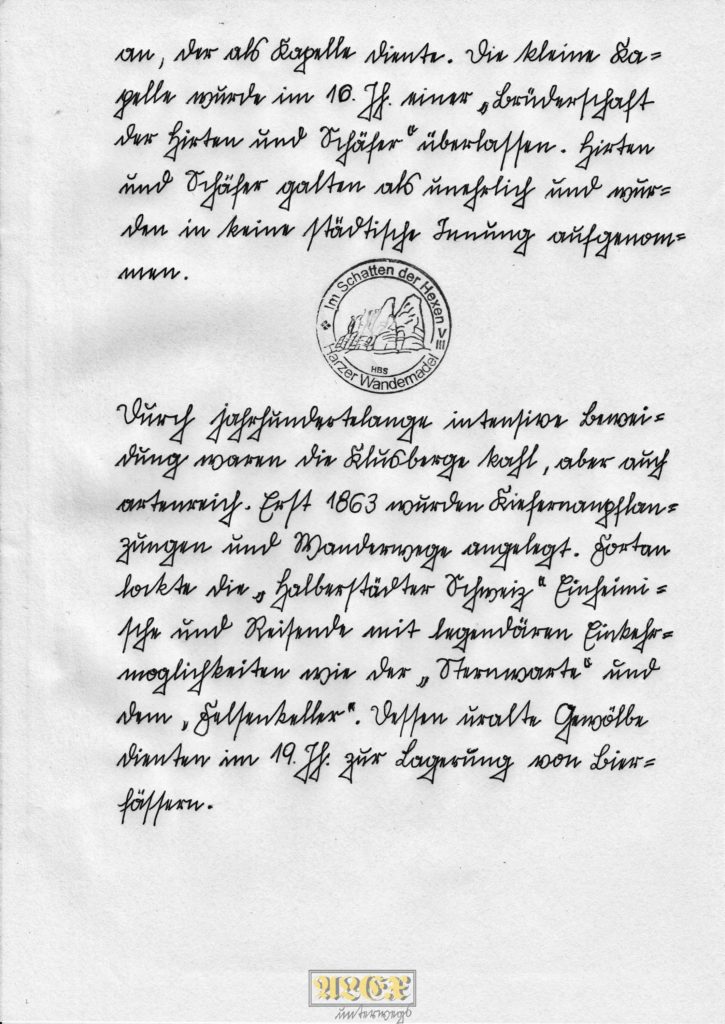 an, der als Kapelle diente. Die kleine Ka=
pelle wurde im 16. Jh. einer „Brüderschaft
der Hirten und Schäfer“ überlassen. Hirten
und Schäfer galten als unehrlich und wur=
den in keine städtische Innung aufgenom=
men.
Im Schatten der Hexen VIII
HBS
Harzer Wandernadel
Durch jahrhundertelange intensive Bewei=
dung waren die Klusberge kahl, aber auch
artenreich. Erst 1863 wurden Kiefernanpflan=
zungen und Wanderwege angelegt. Fortan
lockte die „Halberstädter Schweiz“ Einheimi=
sche und Reisende mit legendären Einkehr=
moglichkeiten wie der „Sternwarte“ und
dem „Felsenkeller“. Dessen uralte Gewölbe
dienten im 19. Jh. zur Lagerung von Bier=
fässern.
ALEX
unterwegs